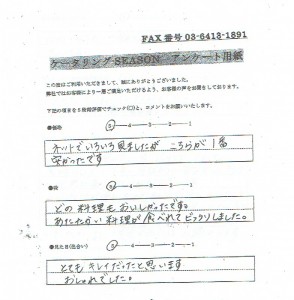 FAX番号 03-6413-1891
ケータリング SEASON アンケート用紙
この度はご利用いただきまして、誠にありがとうございました。
弊社ではお客様により一層ご満足いただけるよう、お客様の声をお聞きしております。
下記の項目を5段階評価でチェック(☑)と、コメントをお願いいたします。
●価格 5-4-3-2-1
ネットでいろいろ見ましたが こちらが1番
安かったです
●味 5-4-3-2-1
どの料理もおいしかったです。
あたたかい料理が食べれてビックリしました。
●見た目(色合い) 5-4-3-2-1
とても キレイだったと思います
おしゃれでした。